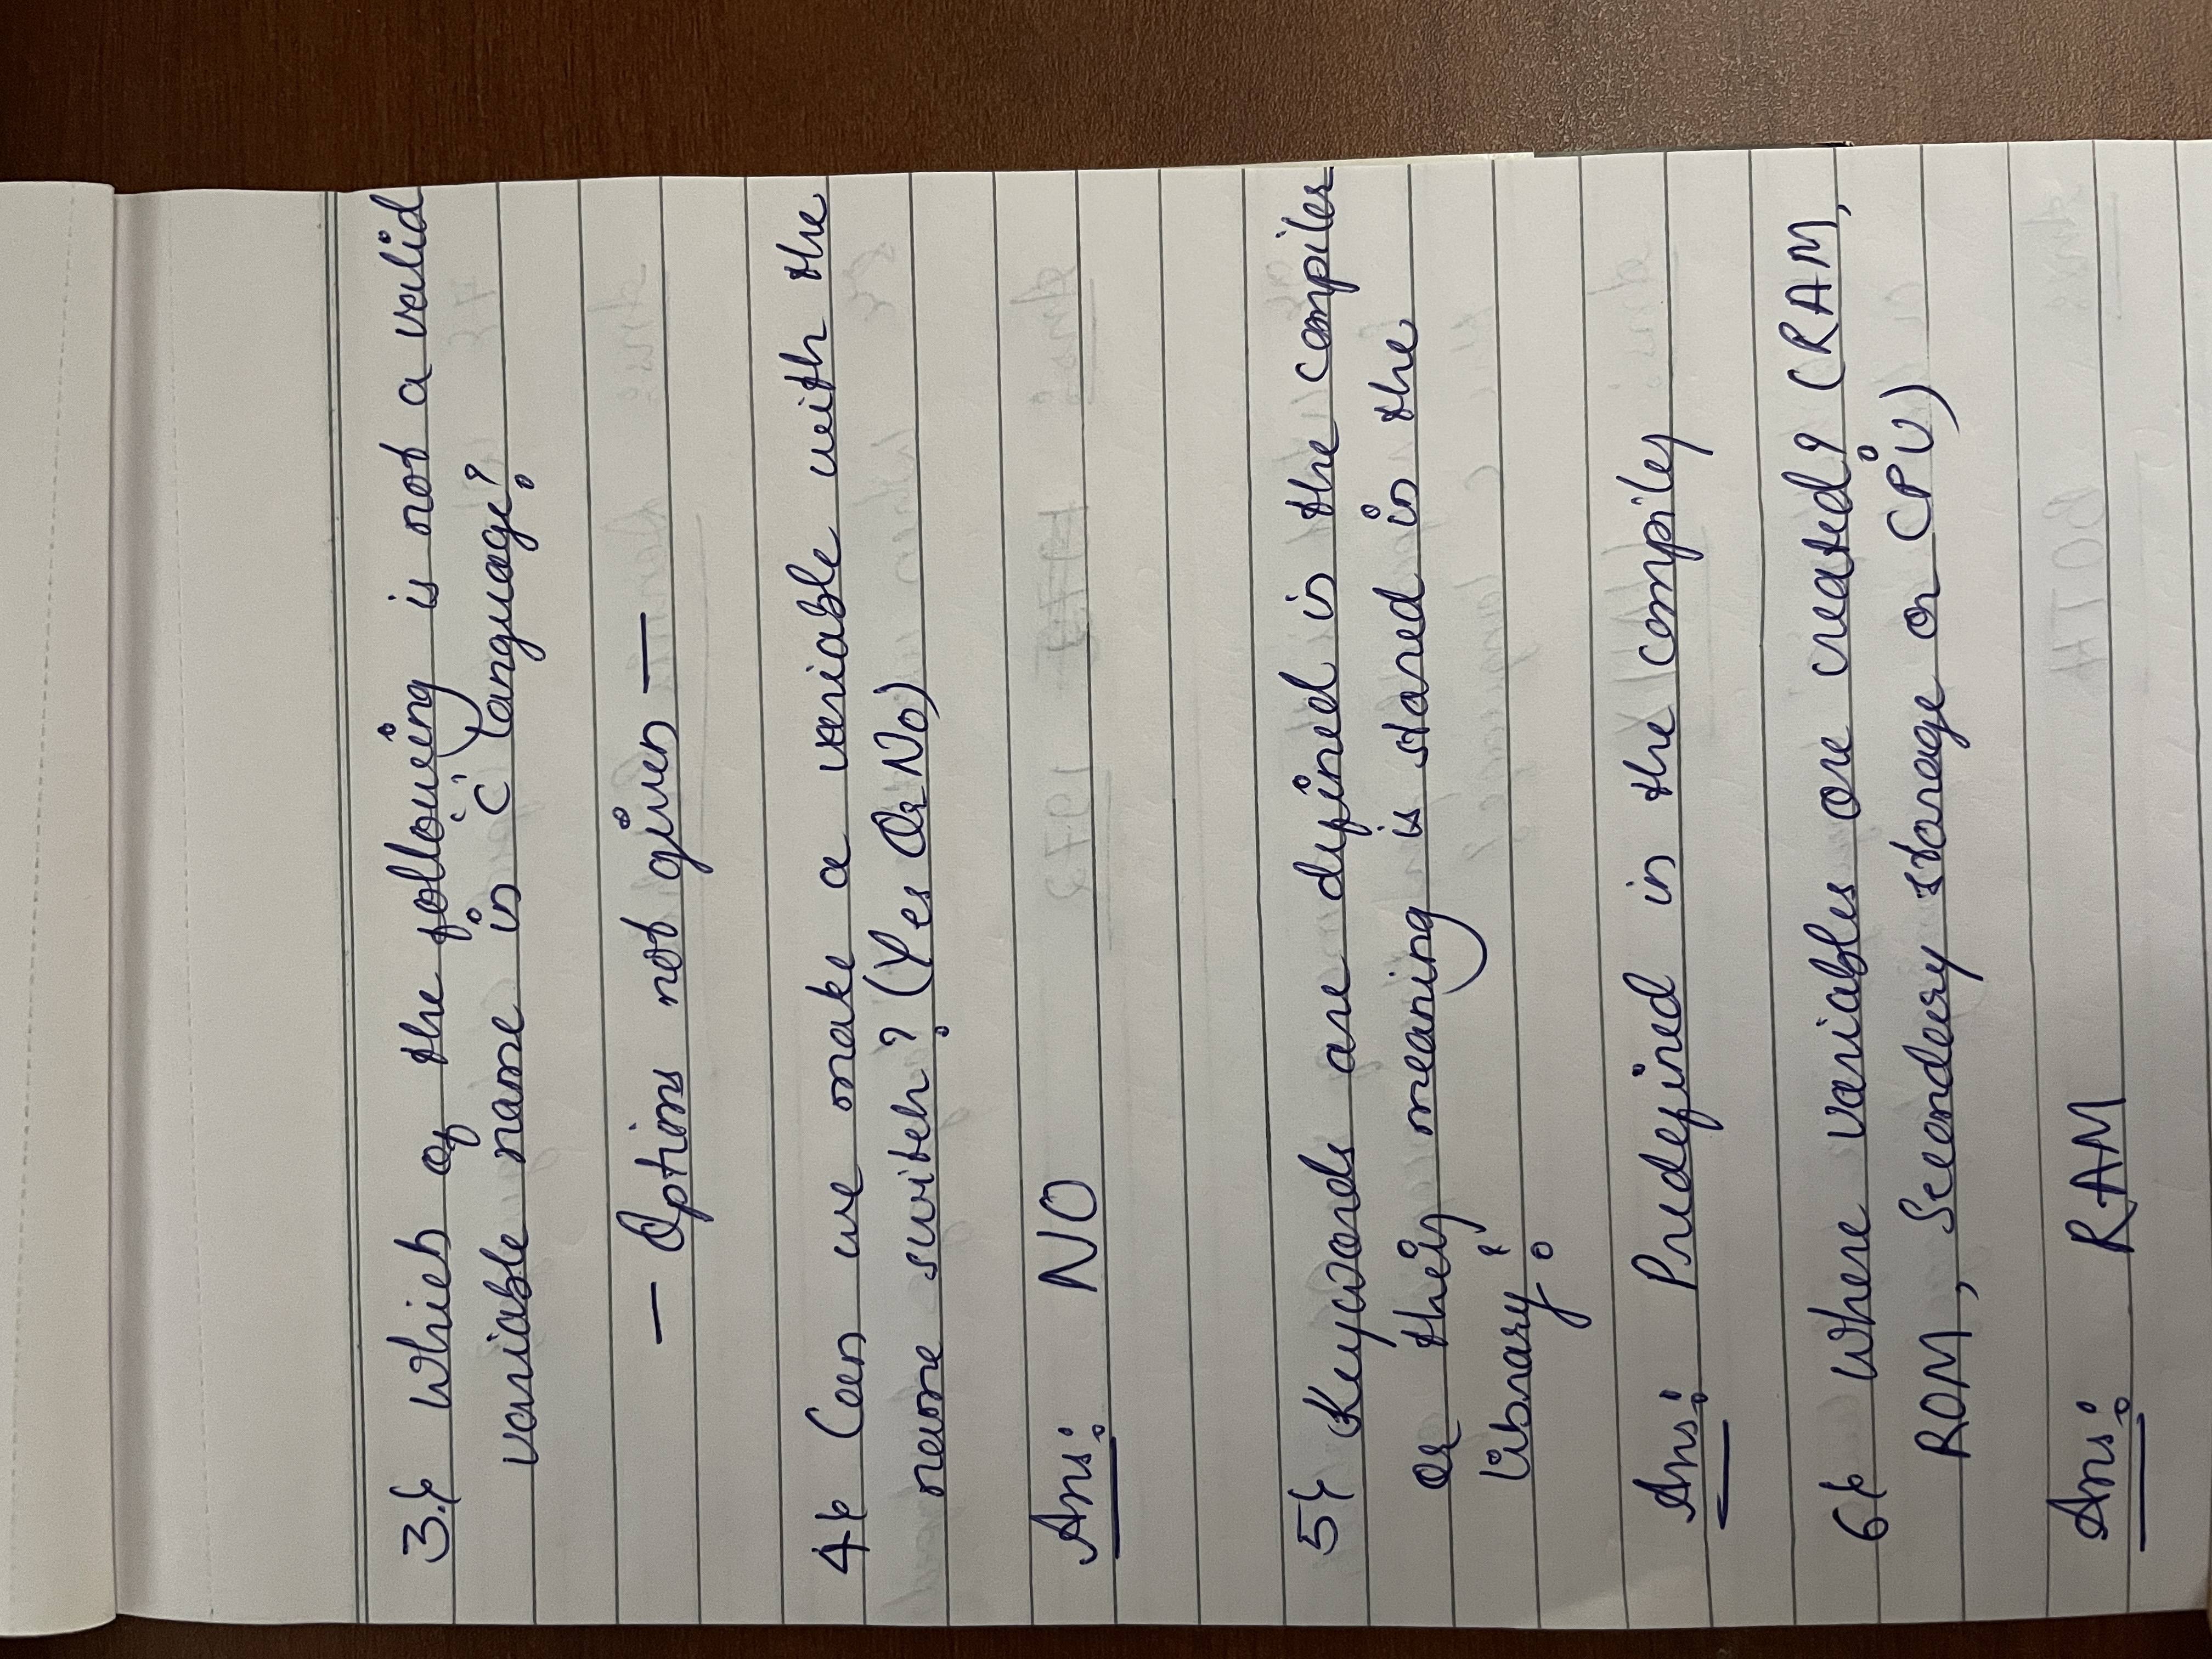 3.} Which of the following is not a valid
variable name in 'C' language?
— Options not given —
4} Can we make a variable with the
name switch? (Yes Or No)
Ans: NO
5} Keywords are defined in the compiler
or their meaning is stored in the
library?
Ans: Predefined in the compiler
6} Where variables are created? (RAM,
ROM, Secondary storage or CPU)
Ans: RAM